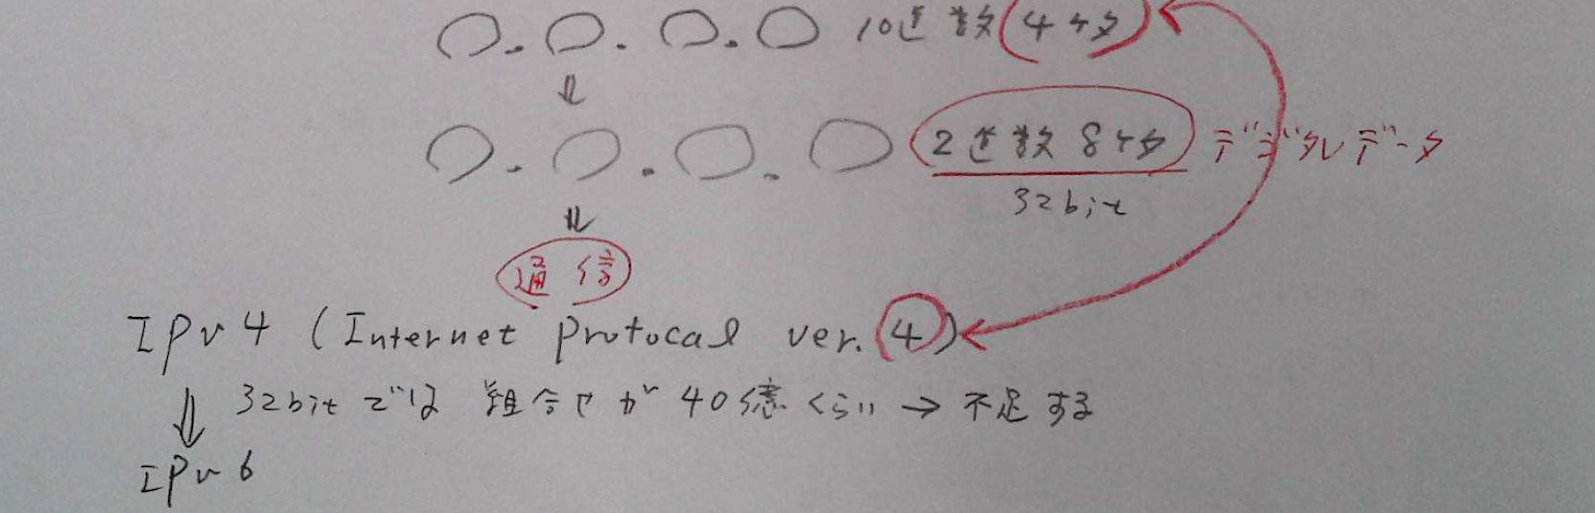 ○.○.○.○ 10進数(4ケタ)
⇓
○.○.○.○ 2進数8ケタ デジタルデータ
32bit
⇓
通信
IPv4 (Internet Protocal ver.4)
⇓ 32bitでは 組合せが 40億くらい → 不足する
IPv6